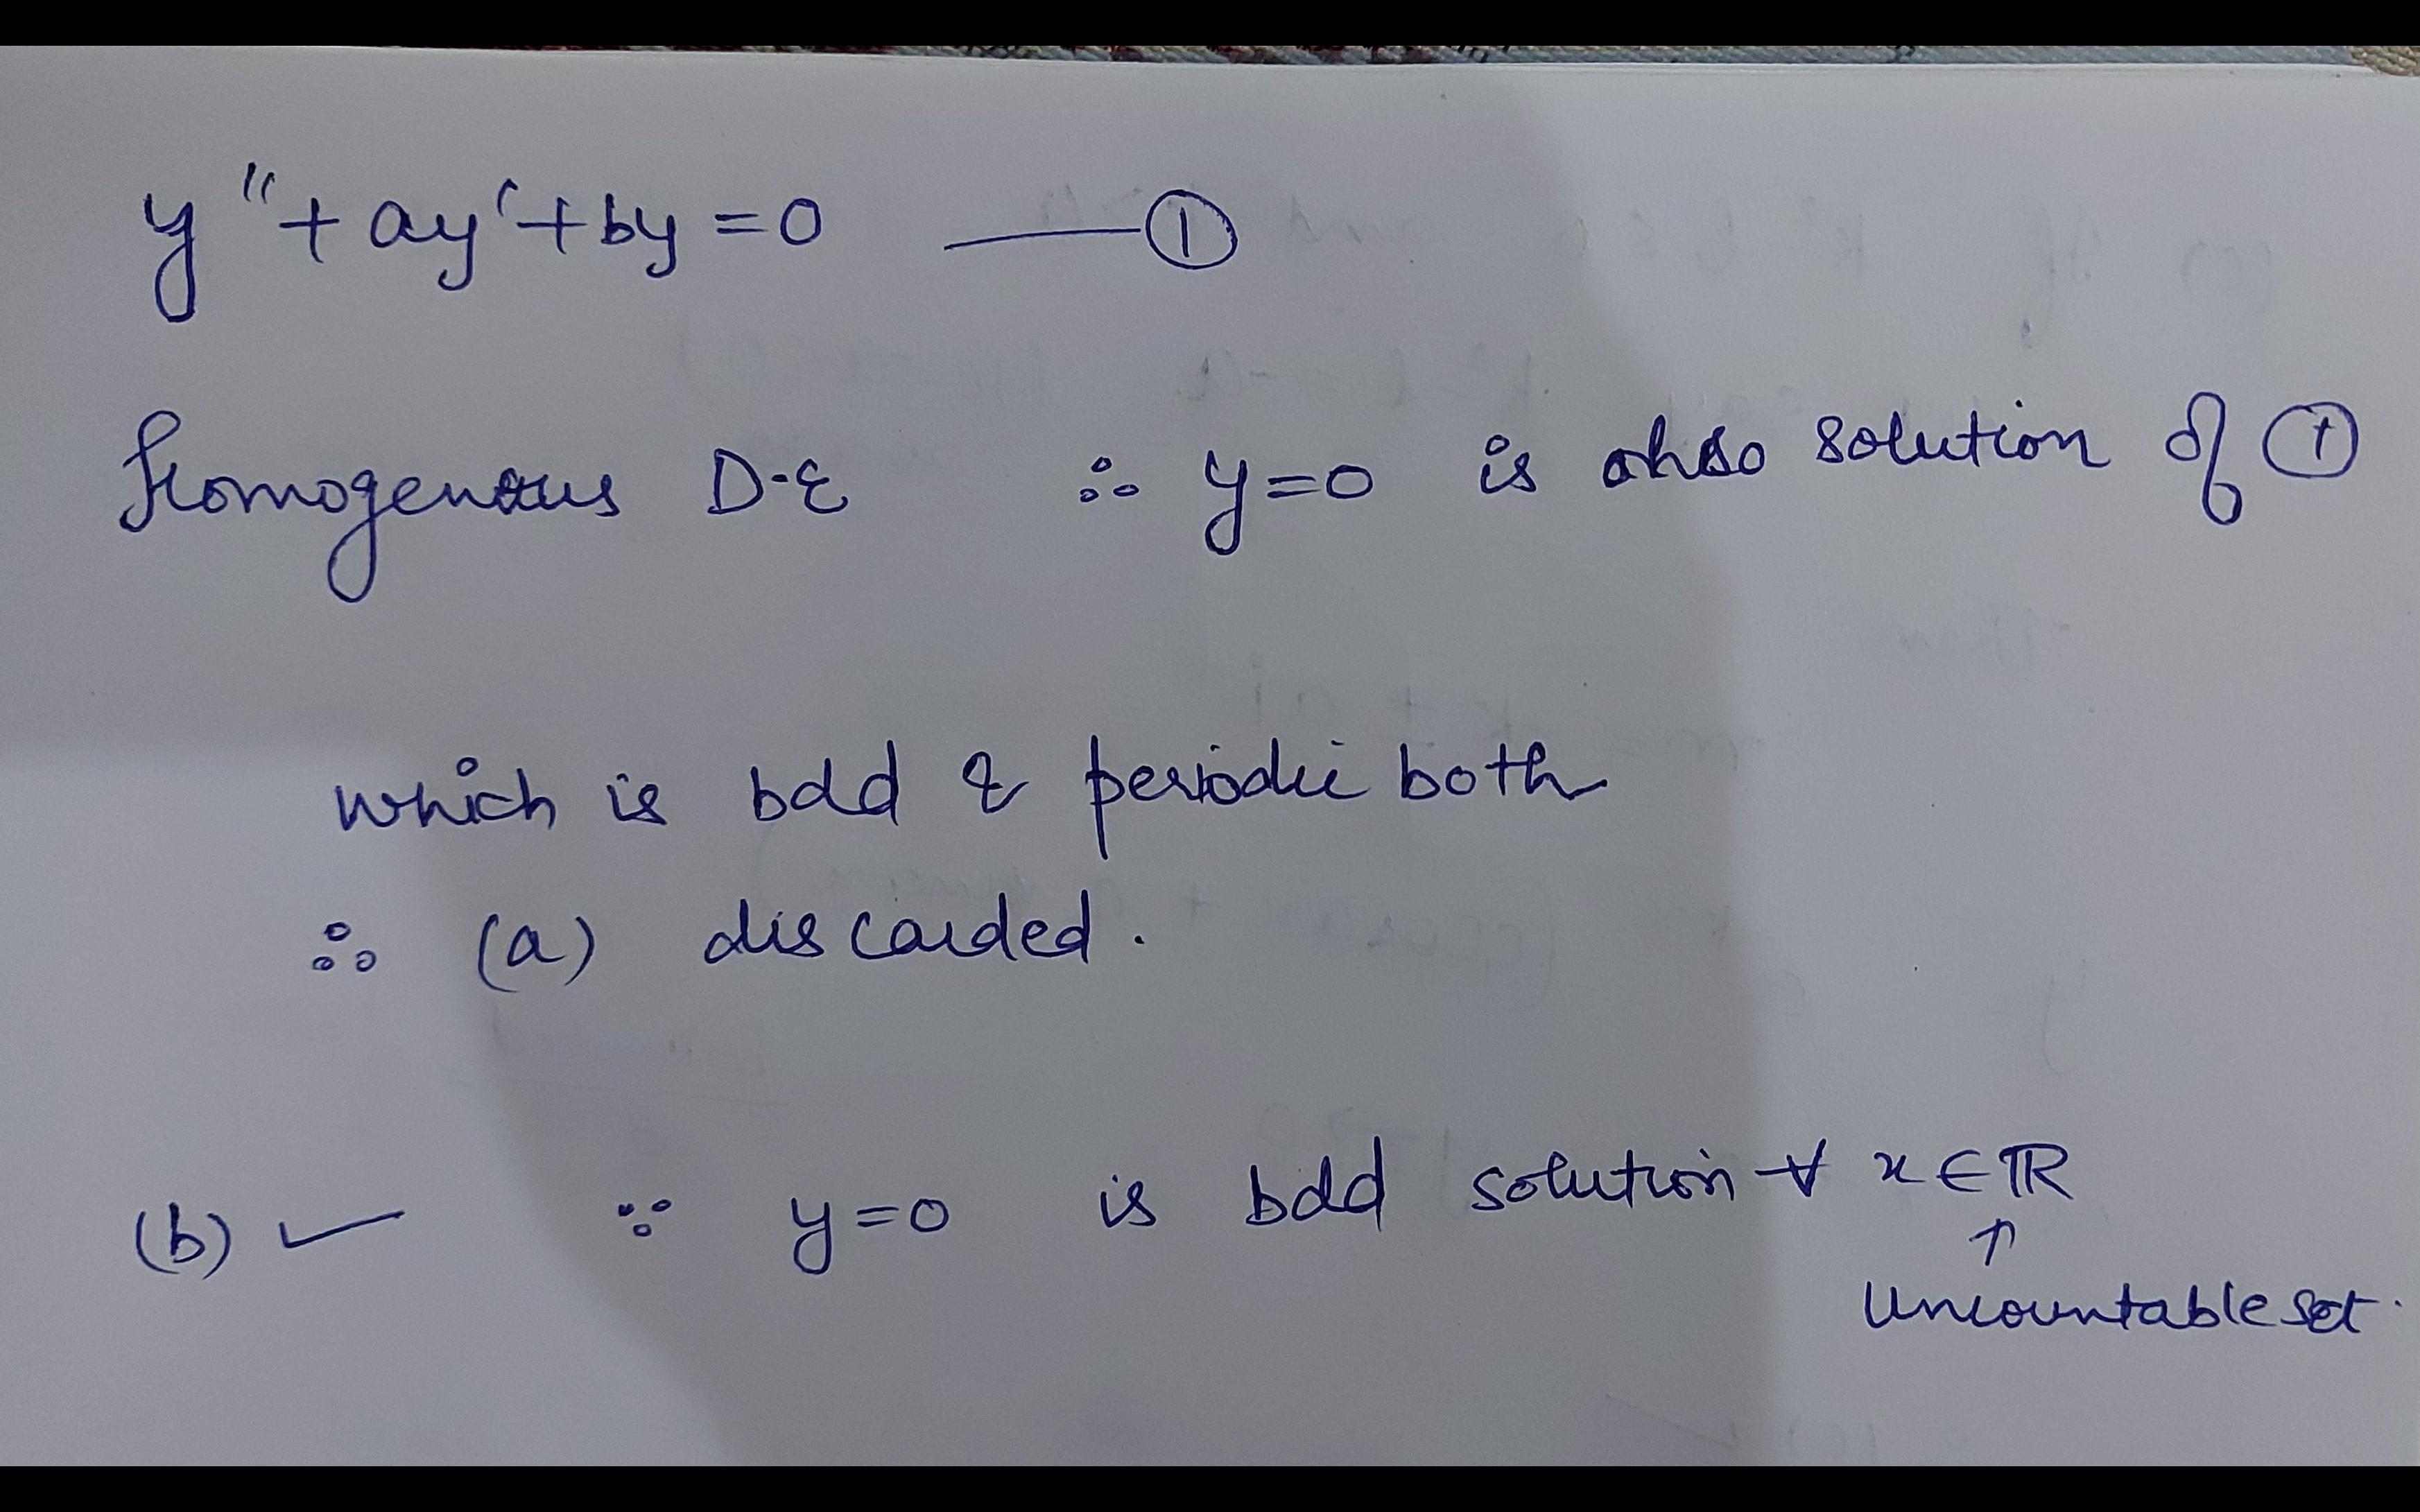 y" + ay' + by = 0 —— ①
Homogenous D.E ∴ y=0 is also solution of ①
which is bdd & periodic both
∴ (a) discarded.
(b) ✓ ∵ y=0 is bdd solution ∀ x ∈ ℝ
↑
Uncountable set.